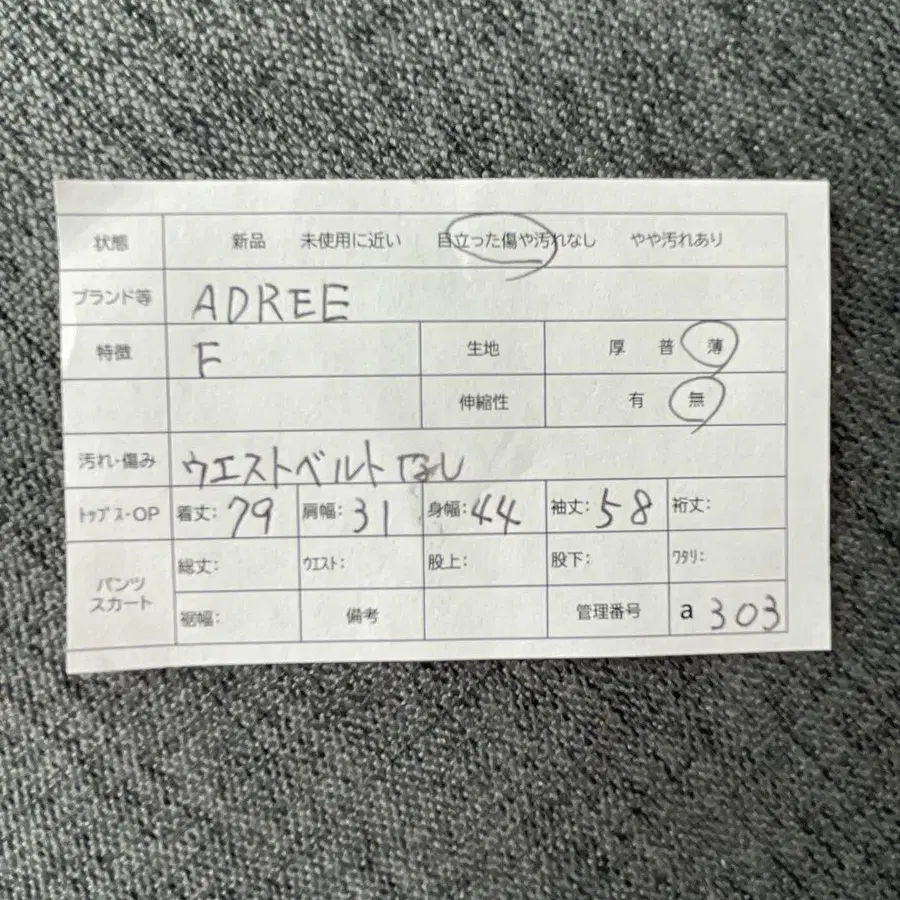 状態 新品 未使用に近い 目立った傷や汚れなし やや汚れあり
ブランド等 ADREE
特徴 F 生地 厚 普 薄
伸縮性 有 無
汚れ・傷み ウエストベルトなし
トップス・OP 着丈: 79 肩幅: 31 身幅: 44 袖丈: 58 裄丈:
パンツ スカート 総丈: ウエスト: 股上: 股下: ワタリ:
裾幅: 備考 管理番号 a 303